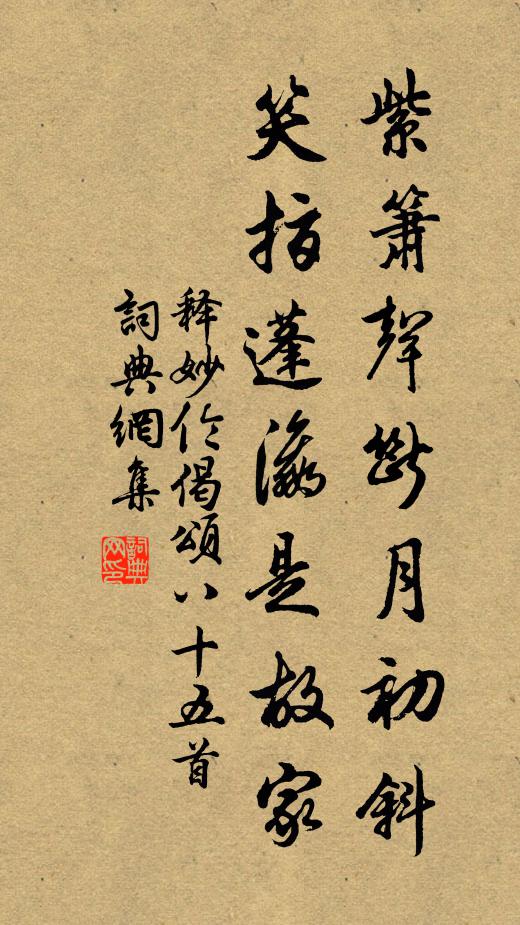 紫簫聲斷月初斜
笑指蓬瀛是故家
释妙伦偈頌八十五首
詞典網集
詞典网印